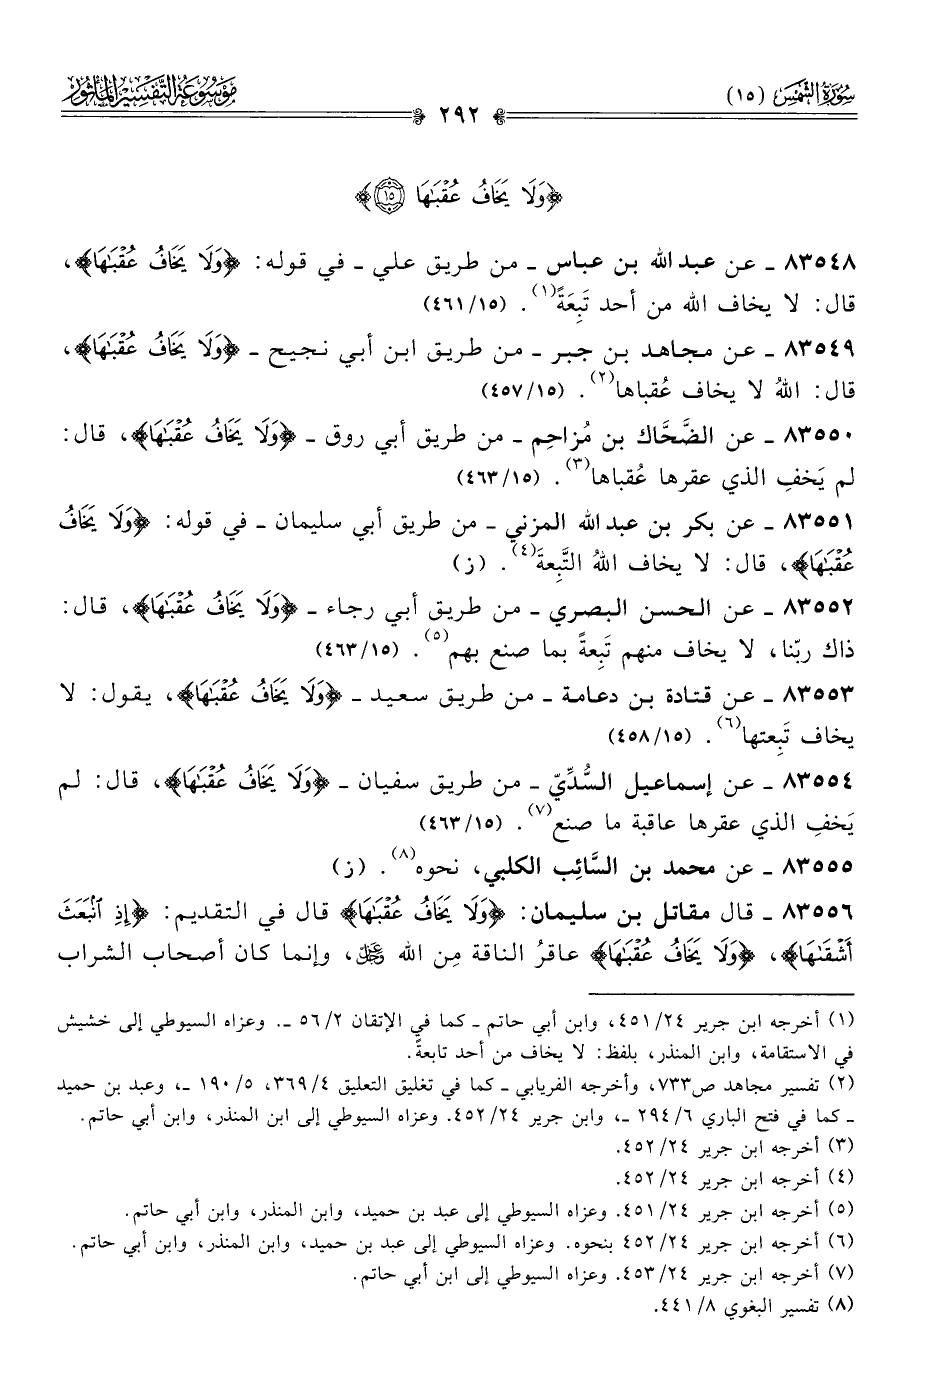 سُورَةُ الشَّمْسِ (١٥)
مَوْسُوعَةُ التَّفْسِيرِ المَأْثُورِ
٢٩٢
﴿وَلَا يَخَافُ عُقْبَٰهَا ١٥﴾
٨٣٥٤٨ ـ عن عبد الله بن عباس ـ من طريق علي ـ في قوله: ﴿وَلَا يَخَافُ عُقْبَٰهَا﴾،
قال: لا يخاف الله من أحد تَبِعَةً(١). (٤٦١/١٥)
٨٣٥٤٩ ـ عن مجاهد بن جبر ـ من طريق ابن أبي نجيح ـ ﴿وَلَا يَخَافُ عُقْبَٰهَا﴾،
قال: اللهُ لا يخاف عُقباها(٢). (٤٥٧/١٥)
٨٣٥٥٠ ـ عن الضَّحَّاك بن مُزاحِم ـ من طريق أبي روق ـ ﴿وَلَا يَخَافُ عُقْبَٰهَا﴾، قال:
لم يَخفِ الذي عقرها عُقباها(٣). (٤٦٣/١٥)
٨٣٥٥١ ـ عن بكر بن عبد الله المزني ـ من طريق أبي سليمان ـ في قوله: ﴿وَلَا يَخَافُ
عُقْبَٰهَا﴾، قال: لا يخاف اللهُ التَّبِعةَ(٤). (ز)
٨٣٥٥٢ ـ عن الحسن البصري ـ من طريق أبي رجاء ـ ﴿وَلَا يَخَافُ عُقْبَٰهَا﴾، قال:
ذاك ربّنا، لا يخاف منهم تَبِعةً بما صنع بهم(٥). (٤٦٣/١٥)
٨٣٥٥٣ ـ عن قتادة بن دعامة ـ من طريق سعيد ـ ﴿وَلَا يَخَافُ عُقْبَٰهَا﴾، يقول: لا
يخاف تَبِعتها(٦). (٤٥٨/١٥)
٨٣٥٥٤ ـ عن إسماعيل السُّدِّيّ ـ من طريق سفيان ـ ﴿وَلَا يَخَافُ عُقْبَٰهَا﴾، قال: لم
يَخفِ الذي عقرها عاقبة ما صنع(٧). (٤٦٣/١٥)
٨٣٥٥٥ ـ عن محمد بن السَّائِب الكلبي، نحوه(٨). (ز)
٨٣٥٥٦ ـ قال مقاتل بن سليمان: ﴿وَلَا يَخَافُ عُقْبَٰهَا﴾ قال في التقديم: ﴿إِذِ ٱنۢبَعَثَ
أَشْقَىٰهَا﴾، ﴿وَلَا يَخَافُ عُقْبَٰهَا﴾ عاقرُ الناقة مِن الله ﷿، وإنما كان أصحاب الشراب
(١) أخرجه ابن جرير ٤٥١/٢٤، وابن أبي حاتم ـ كما في الإتقان ٥٦/٢ ـ. وعزاه السيوطي إلى خشيش
في الاستقامة، وابن المنذر، بلفظ: لا يخاف من أحد تابعةً.
(٢) تفسير مجاهد ص٧٣٣، وأخرجه الفريابي ـ كما في تغليق التعليق ٣٦٩/٤، ١٩٠/٥ ـ، وعبد بن حميد
ـ كما في فتح الباري ٢٩٤/٦ ـ، وابن جرير ٤٥٢/٢٤. وعزاه السيوطي إلى ابن المنذر، وابن أبي حاتم.
(٣) أخرجه ابن جرير ٤٥٢/٢٤.
(٤) أخرجه ابن جرير ٤٥٢/٢٤.
(٥) أخرجه ابن جرير ٤٥١/٢٤. وعزاه السيوطي إلى عبد بن حميد، وابن المنذر، وابن أبي حاتم.
(٦) أخرجه ابن جرير ٤٥٢/٢٤ بنحوه. وعزاه السيوطي إلى عبد بن حميد، وابن المنذر، وابن أبي حاتم.
(٧) أخرجه ابن جرير ٤٥٣/٢٤. وعزاه السيوطي إلى ابن أبي حاتم.
(٨) تفسير البغوي ٤٤١/٨.